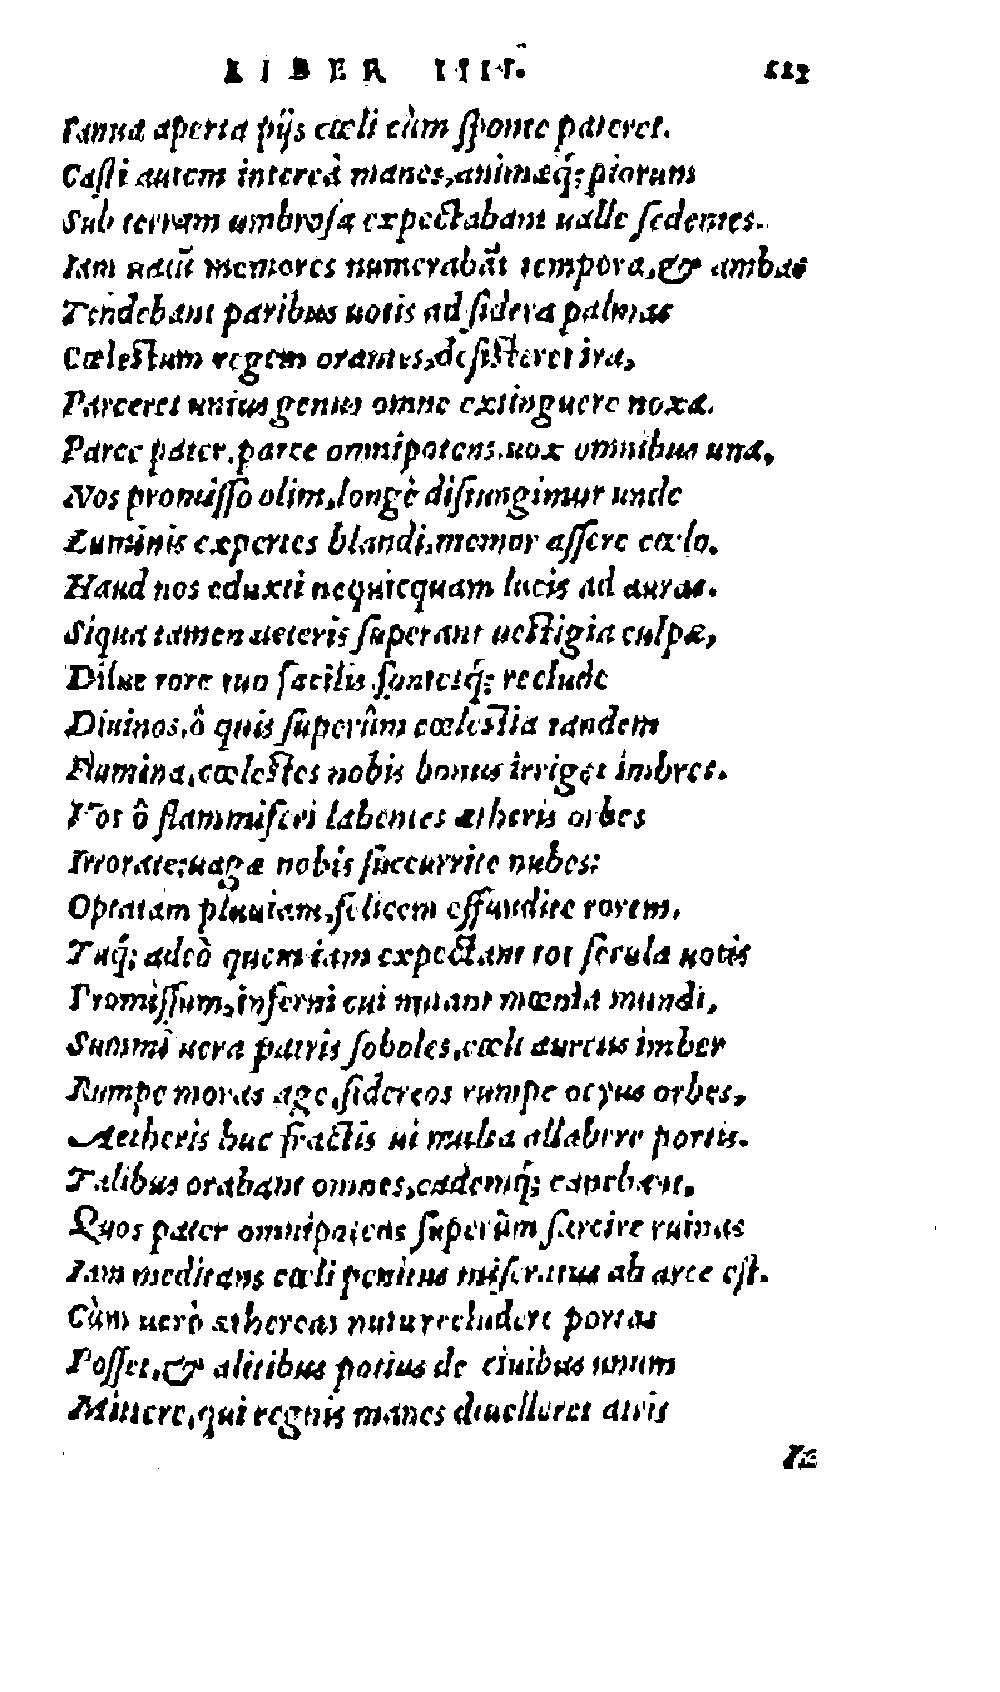 LIBER IIII. 113
Ianua aperta pijs cœli cùm sponte pateret.
Casti autem intereà manes, animæq́; piorum
Sub terram umbrosa expectabant ualle sedentes.
Iam uatũ memores numerabãt tempora, & ambas
Tendebant paribus uotis ad sidera palmas
Cœlestum regem orantes, desisteret ira,
Parceret unius gentis omne extinguere noxa.
Parce pater, parce omnipotens, uox omnibus una,
Nos promisso olim, longè disiungimur unde
Luminis expertes blandi, memor assere cœlo.
Haud nos eduxti nequicquam lucis ad auras.
Siqua tamen ueteris superant uestigia culpæ,
Dilue rore tuo facilis, fonteisq́; reclude
Diuinos, ô quis superûm cœlestia tandem
Numina, cœlestes nobis bonus irriget imbres.
Vos ô flammiferi labentes ætheris orbes
Irrorate; uagæ nobis succurrite nubes:
Optatam pluuiam, felicem effundite rorem,
Tuq́; adeò quem iam expectant tot secula uotis
Promissum, inferni cui nutant mœnia mundi,
Summi uera patris soboles, cœli aureus imber
Rumpe moras age, sidereos rumpe ocyus orbes,
Aetheris huc fractis ui multa allabere portis.
Talibus orabant omnes, eademq́; canebant,
Quos pater omnipotens superûm sarcire ruinas
Iam meditans cœli penitus miseratus ab arce est.
Cùm uerò æthereas nutu recludere portas
Posset, & alitibus potius de ciuibus unum
Mittere, qui regnis manes diuelleret atris